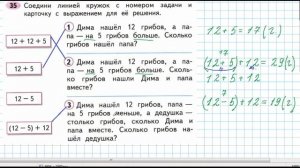 35 Соедини линией кружок с номером задачи и
карточку с выражением для её решения.
12 + 12 + 5
12 + 5
12 − 5
(12 − 5) + 12
1 Дима нашёл 12 грибов, а па-
па — на 5 грибов больше. Сколько
грибов нашёл папа?
2 Дима нашёл 12 грибов, а
папа — на 5 грибов больше. Сколь-
ко грибов нашли Дима и папа
вместе?
3 Дима нашёл 12 грибов, папа —
на 5 грибов меньше, а дедушка —
столько грибов, сколько Дима и
папа вместе. Сколько грибов на-
шёл дедушка?
12+5=17(г)
17
(12+5)+12=29(г)
12+5+12
7
(12−5)+12=19(г)